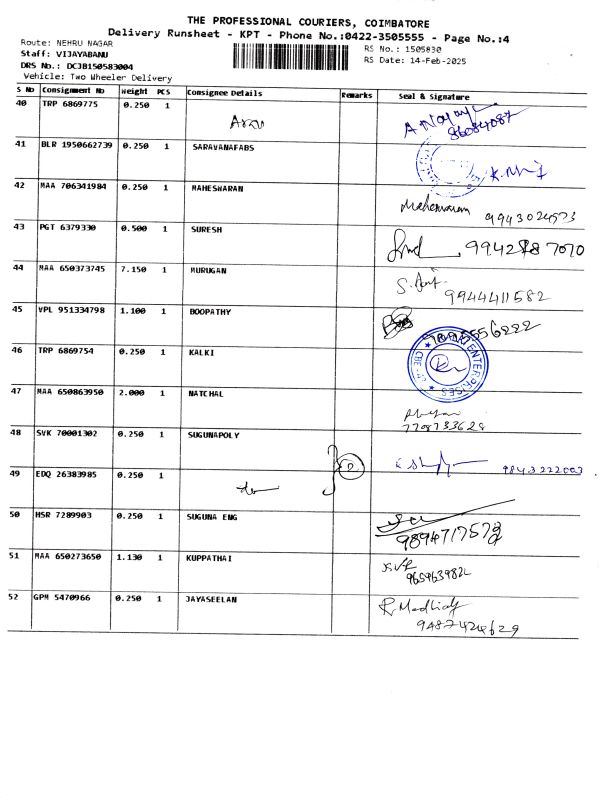 THE PROFESSIONAL COURIERS, COIMBATORE
Delivery Runsheet - KPT - Phone No.:0422-3505555 - Page No.:4
Route: NEHRU NAGAR
Staff: VIJAYABANU
DRS No.: DCJB150583004
Vehicle: Two Wheeler Delivery
RS No.: 1505830
RS Date: 14-Feb-2025
S No Consignment No Weight PCS Consignee Details Remarks Seal & Signature
40 TRP 6869775 0.250 1
41 BLR 1950662739 0.250 1 SARAVANAFABS
42 MAA 706341984 0.250 1 MAHESWARAN Maheswaran 9943024573
43 PGT 6379330 0.500 1 SURESH
44 MAA 650373745 7.150 1 MURUGAN 9944411582
45 VPL 951334798 1.100 1 BOOPATHY
46 TRP 6869754 0.250 1 KALKI ENTERPRISES
47 MAA 650863950 2.000 1 NATCHAL 7708733628
48 SVK 70001302 0.250 1 SUGUNAPOLY 9843222003
49 EDQ 26383985 0.250 1
50 HSR 7289903 0.250 1 SUGUNA ENG
51 MAA 650273650 1.130 1 KUPPATHAI
52 GPM 5470966 0.250 1 JAYASEELAN 9487424629